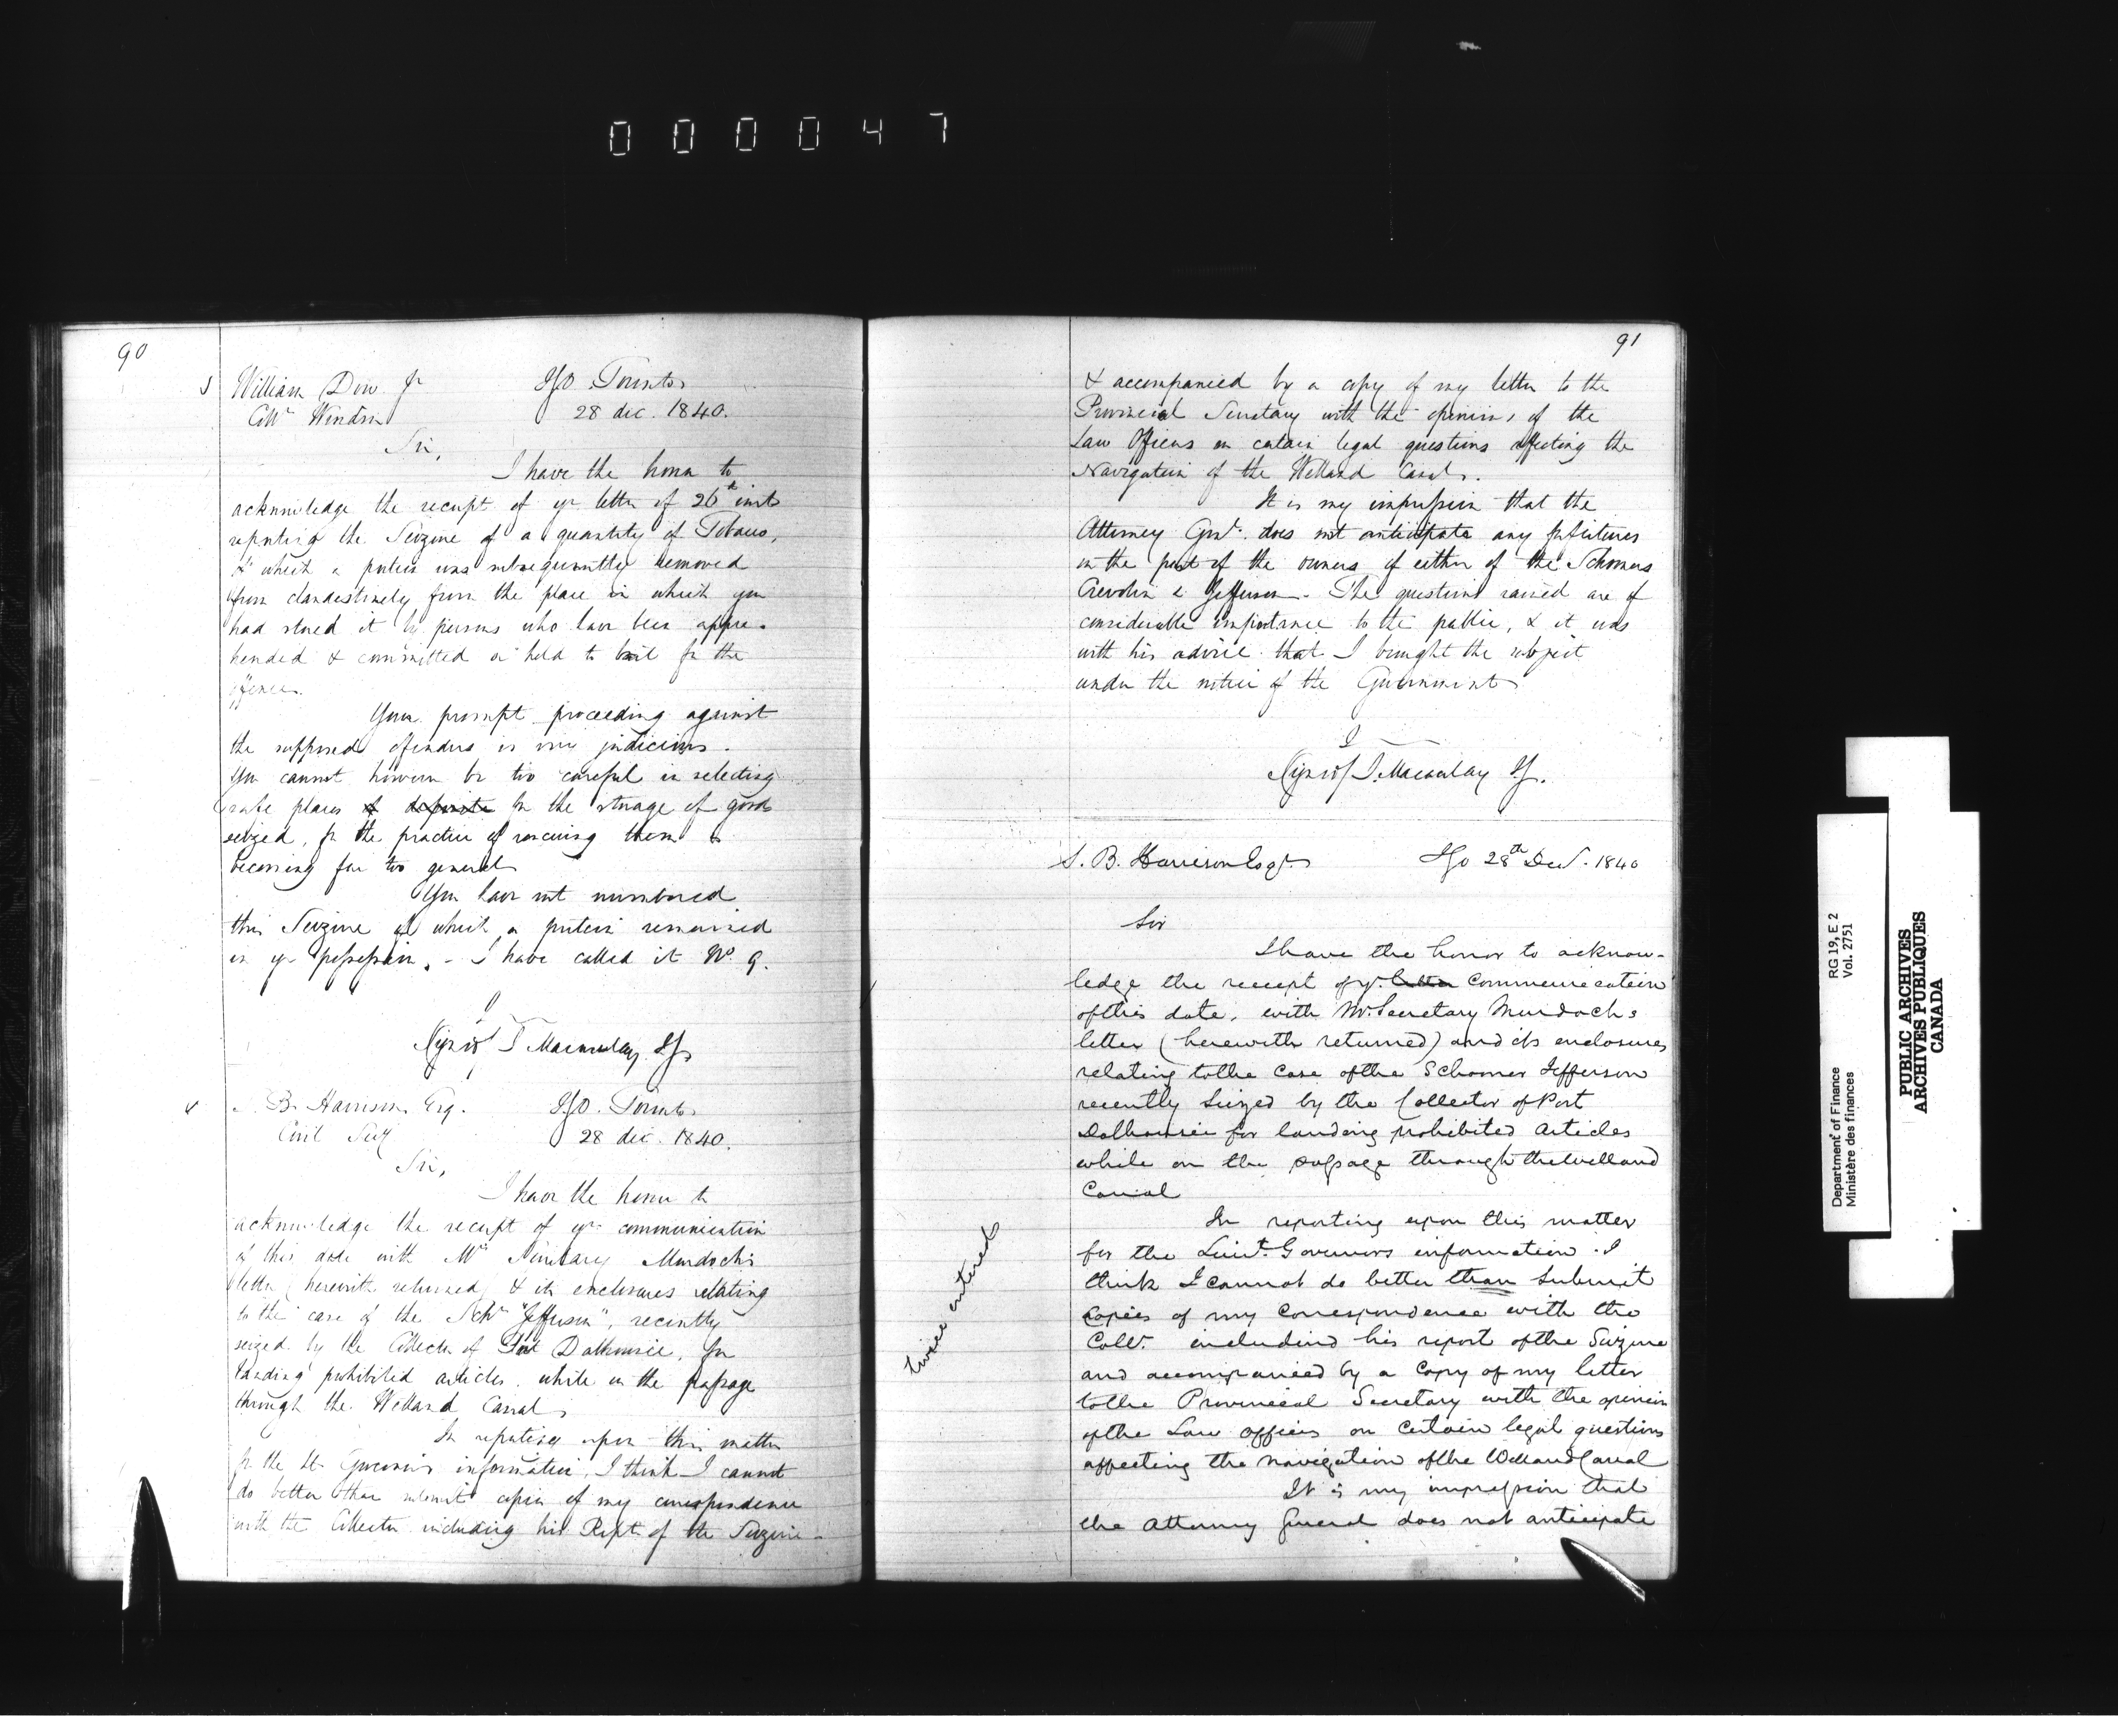 000047
90
William Dow Jr IGO Toronto
Collr Windsor 28 dec. 1840.
Sir,
I have the honor to
acknowledge the receipt of yr letter of 26th inst
reporting the Seizure of a quantity of Tobacco,
of which a portion was subsequently removed
from clandestinely from the place in which you
had stored it by persons who have been appre-
hended & committed or held to bail for the
offence.
Your prompt proceeding against
the supposed offenders is very judicious.
You cannot however be too careful in selecting
safe places of deposite for the storage of goods
seized, for the practice of rescuing them is
becoming far too general
You have not numbered
this Seizure of which a portion remained
in yr possession. - I have called it No 9.
I
Signed J Macaulay IG
S. B. Harrison Esq. IGO. Toronto
Civil Secy 28 dec. 1840.
Sir,
I have the honor to
acknowledge the receipt of yr communication
of this date with Mr Secretary Murdoch's
letter (herewith returned) & its enclosures relating
to the case of the Schr "Jefferson", recently
seized by the Collector of Port Dalhousie, for
landing prohibited articles while on the passage
through the Welland Canal,
In reporting upon this matter
for the Lt Governor's information, I think I cannot
do better than submit copies of my correspondence
with the Collector including his Rept of the Seizure -
91
& accompanied by a copy of my letter to the
Provincial Secretary with the opinions of the
Law Officers on certain legal questions affecting the
Navigation of the Welland Canal.
It is my impression that the
Attorney Genl. does not anticipate any forfeitures
on the part of the owners of either of the Schooners
& Jefferson - The questions raised are of
considerable importance to the public, & it was
with his advice that I brought the subject
under the notice of the Government
I
Signed J. Macaulay IG.
S. B. Harrison Esqr. IGO 28th Decr. 1840
Sir
I have the honor to acknow-
ledge the receipt of yr. letter communication
of this date, with Mr. Secretary Murdochs
letter (herewith returned) and its enclosures
relating to the case of the Schooner Jefferson
recently seized by the Collector of Port
Dalhousie for landing prohibited articles
while on the passage through the Welland
Canal
In reporting upon this matter
for the Lieut. Governors information. I
think I cannot do better than submit
copies of my correspondence with the
Collr. includind his report of the Seizure
and accompanied by a copy of my letter
to the Provincial Secretary with the opinion
of the Law officers on certain legal questions
affecting the navigation of the Welland Canal
It is my impression that
the Attorney General does not anticipate
twice entered
Department of Finance
Ministère des finances
RG 19, E 2
Vol. 2751
PUBLIC ARCHIVES
ARCHIVES PUBLIQUES
CANADA